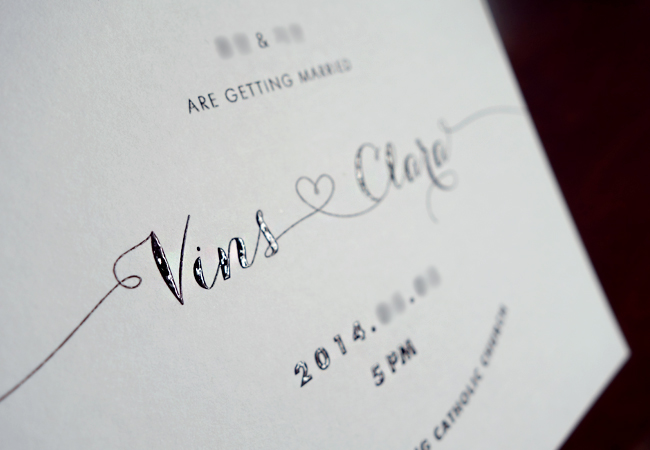 &
ARE GETTING MARRIED
Vins Clara
2014.
5 PM
CATHOLIC CHURCH